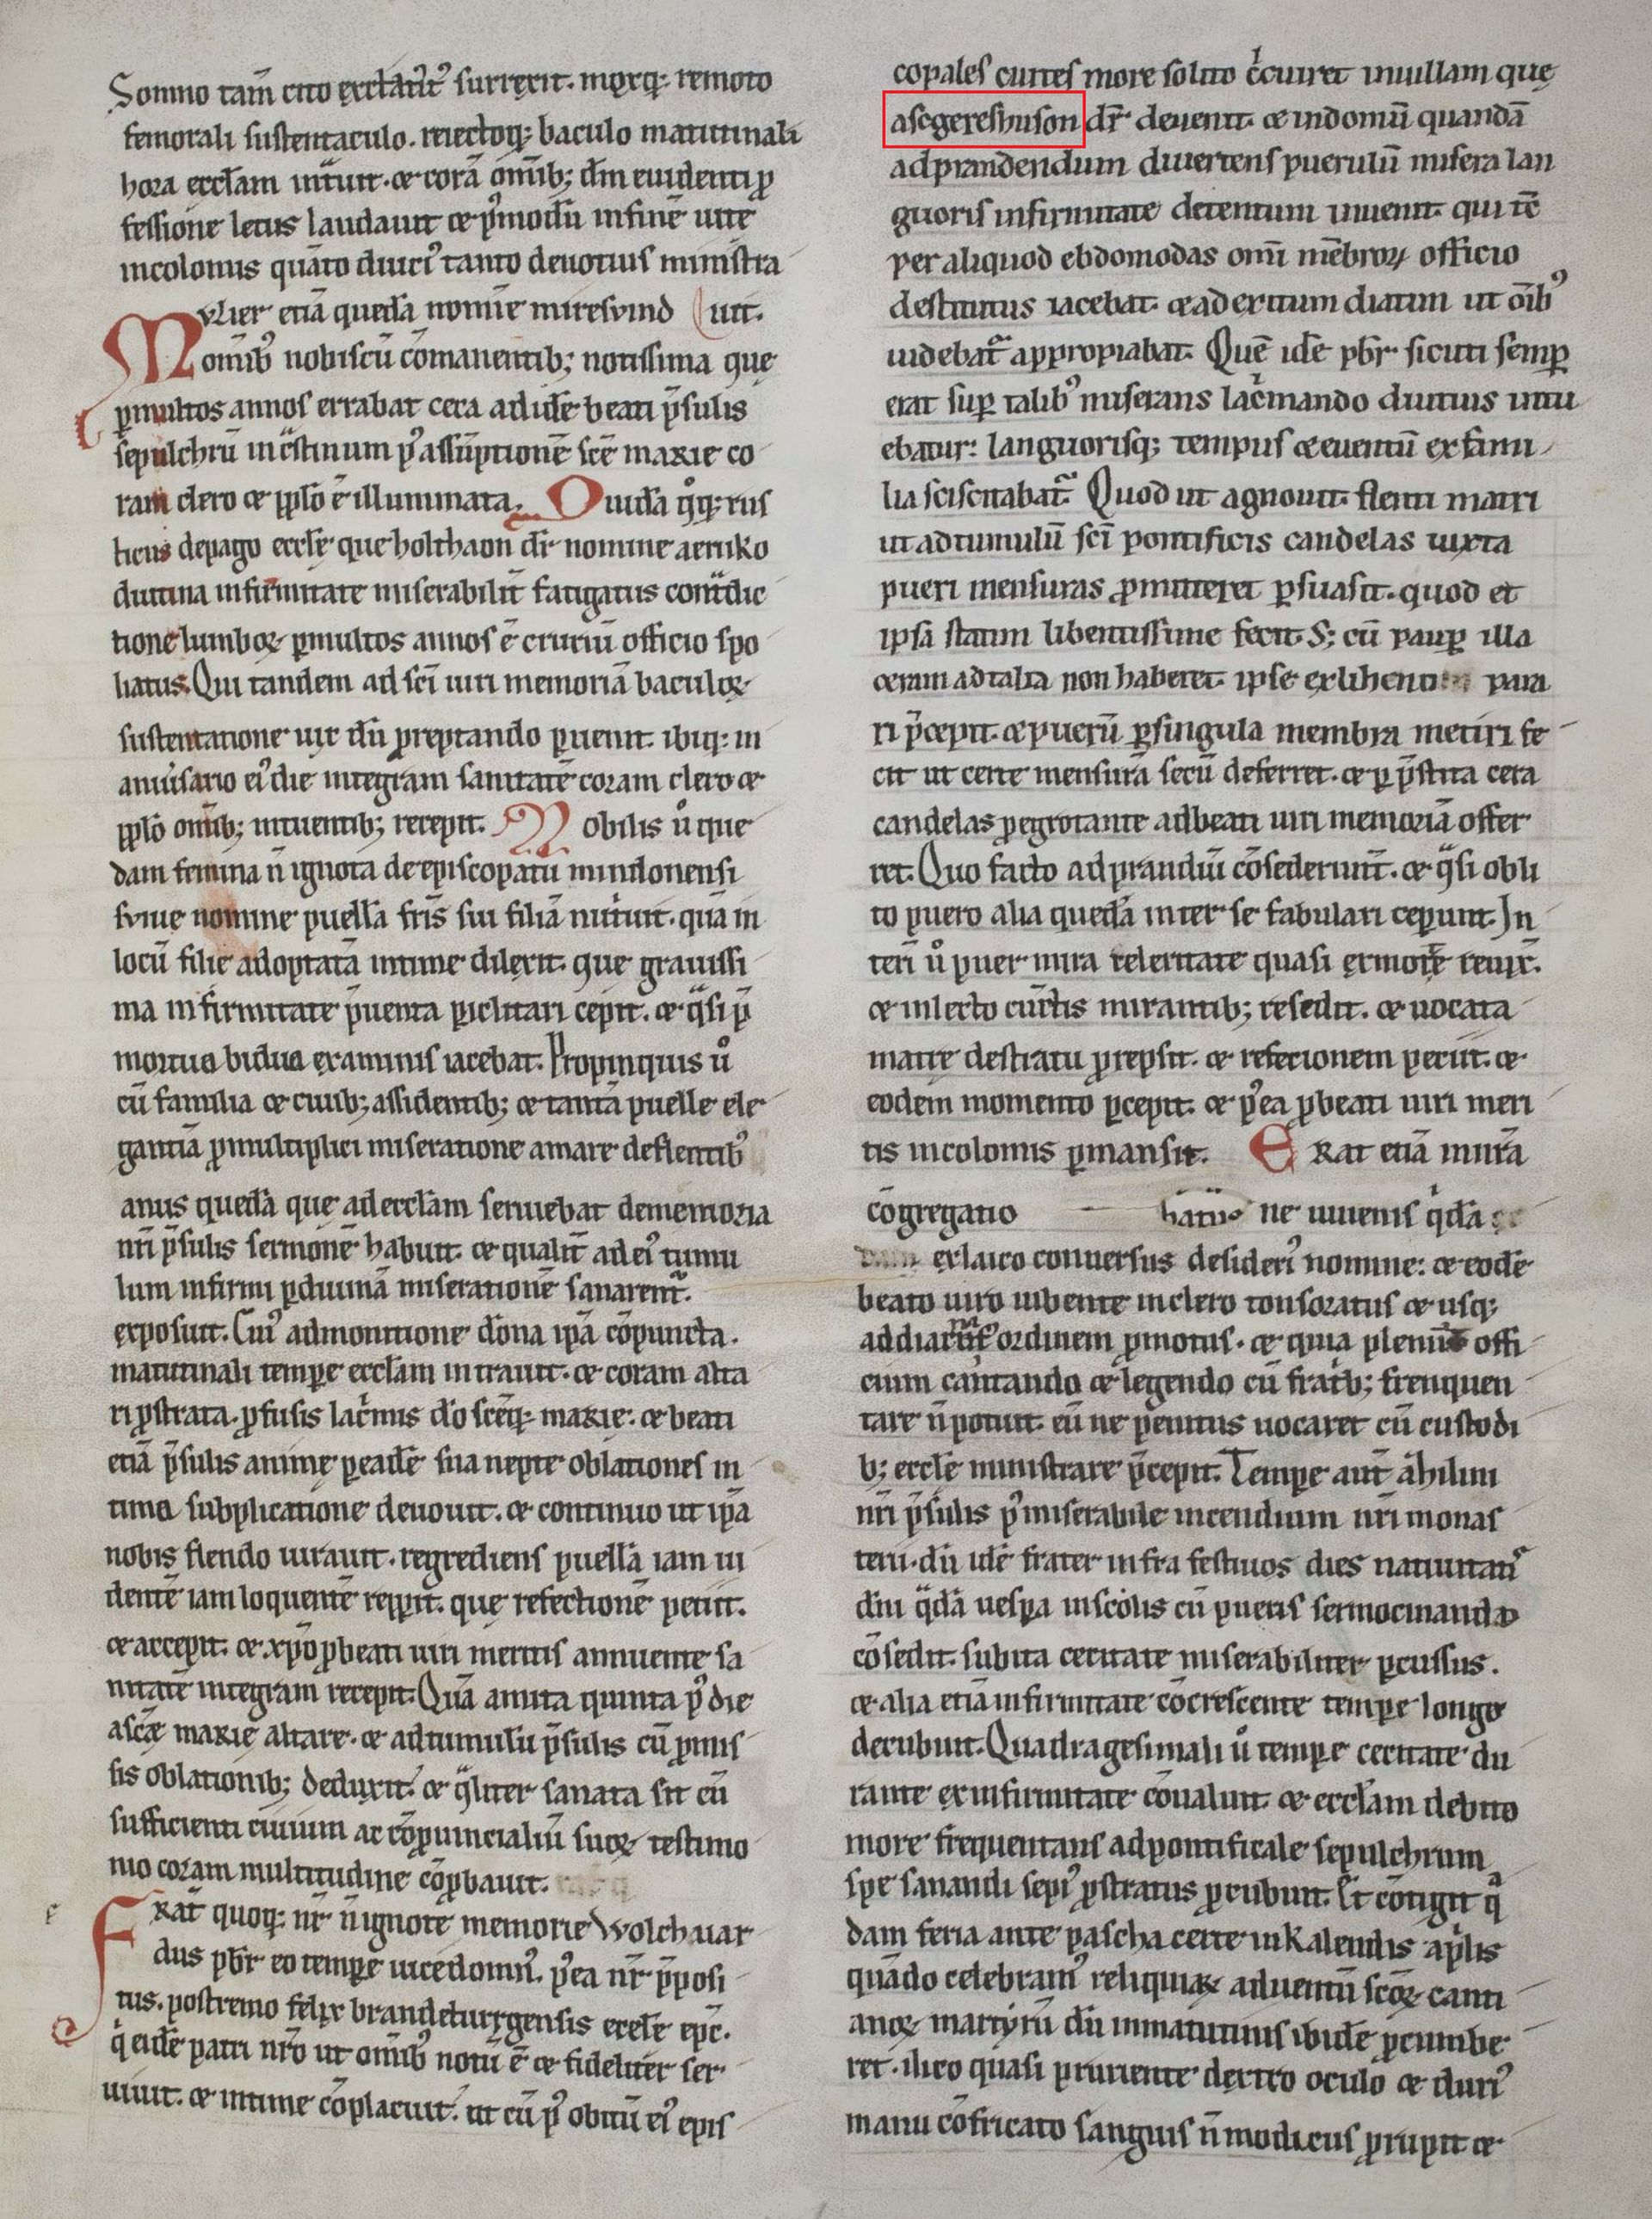 Somno tam̄ cito excitat᷒ surrexit. moxq; remoto
femorali sustentaculo. reiectoq; baculo matutinali
hora eccłam int̄uit. ⁊ corā om̄ib; dn̄m euidenti ꝓ
fessione letus laudauit ⁊ p᷒modū in finē uite
incolomis quāto diuci᷒ tanto deuotius ministra
uit.
Mvlier etiā quedā nomīe miresvind
omib᷒ nobiscū cōmanentib; notissima que
ꝑ multos annos errabat ceca ad idē beati p̄sulis
sepulchrū in c̄stinum p᷒ assūptionē sc̄e marie co
ram clero ⁊ pp̄lo ē illuminata. Quidā q̊q; rus
ticus de pago eccłe que holthaon dr̄ nomine aeniko
diutina infirmitate miserabilit̄ fatigatus contr̄dic
tione lumboꝝ ꝑ multos annos ē cruriū officio spo
liatus. Qui tandem ad sc̄i uiri memoriā baculoꝝ
sustentatione uix dū ꝓreptando ꝑuenit. ibiq; in
aniu̇sario ei᷒ die integram sanitatē coram clero ⁊
pp̄lo om̄ib; intuentib; recepit. Nobilis u̇ que
dam femina n̄ ignota de episcopatu mindonensi
fviue nomine puellā fr̄is sui filiā nut̄uit. quā in
locū filie adoptatā intime dilexit. que grauissi
ma infirmitate p̄uenta ꝑiclitari cepit. ⁊ q̈si p̄
mortua biduo exanimis iacebat. Propinquis u̇
cū familia ⁊ ciuib; assidentib; ⁊ tantā puelle ele
gantiā ꝓ multiplici miseratione amare deflentib᷒
anus quedā que ad eccłam seruiebat de memoria
nr̄i p̄sulis sermonē habuit. ⁊ qualit̄ ad ei᷒ tumu
lum infirmi ꝑ diuinā miserationē sanarent᷑.
exposuit. Cui᷒ admonitione dōna ip̄a cōpuncta.
matutinali tempe eccłam intrauit. ⁊ coram alta
ri ꝓstrata. ꝓfusis lac̍mis dō sc̄eq; marie. ⁊ beati
etiā p̄sulis anime ꝑ eadē sua nepte oblationes in
tima subplicatione deuouit. ⁊ continuo ut ip̄a
nobis flendo iurauit. regrediens puellā iam ui
dentē iam loquentē repꝑit. que refectionē petiit.
⁊ accepit. ⁊ xp̄o ꝓ beati uiri meritis annuente sa
nitatē integram recepit. Quā amita quinta p᷒ die
a sc̄æ marie altare. ⁊ ad tumulū p̄sulis cū ꝓmis
sis oblationib; deduxit. ⁊ q̈liter sanata sit cū
sufficienti ciuium ac cōꝓuincialiū suoꝝ testimo
nio coram multitudine cōꝓbauit.
Erat quoq; nr̄ n̄ ignote memorie Wolchuar
dus pbr̄ eo tempe uicedomn᷒. p᷒ea nr̄ p̄posi
tus. postremo felix brandeturgensis eccłe epc̄.
q̍ eidē patri nr̄o ut omib᷒ notū ē ⁊ fideliter ser
uiuit. ⁊ intime cōplacuit. ut cū p᷒ obitū ei᷒ epis
copales curtes more solito c̍cuiret in uillam que
ascgereshuson dr̄ deuenit. ⁊ in domū quandā
ad prandendum diuertens puerulū misera lan
guoris infirmitate detentum inuenit. qui tc̄
per aliquod ebdomodas omi mēbroꝝ officio
destitutus iacebat. ⁊ ad exitum diatim ut oīb᷒
uidebat᷑ appropiabat. Quē idē pbr̄ sicuti semꝑ
erat suꝑ talib᷒ miserans lac̍mando diutius intu
ebatur: languorisq; tempus ⁊ euentū ex fami
lia sciscitabat᷑ Quod ut agnouit. flenti matri
ut ad tumulū sc̄i pontificis candelas iuxta
pueri mensuras ꝓmitteret ꝑsuasit. quod et
ipsa statim libentissime fecit. S; cū pauꝑ illa
ceram ad talia non haberet. ipse ex libenti para
ri p̄cepit. ⁊ puerū ꝑ singula membra metiri fe
cit ut certe mensurā secū deferret. ⁊ ꝑ p̄stita cera
candelas ꝓ egrotante ad beati uiri memoriā offer
ret. Quo facto ad prandiū cōsederunt̄. ⁊ q̈si obli
to puero alia quedā inter se fabulari ceperunt. In
teri u̇ puer mira celeritate quasi ex morte reuix̄.
⁊ in lecto cunctis mirantib; resedit. ⁊ uocata
matre de stratu ꝓrepsit. ⁊ refecionem petiit. ⁊
eodem momento ꝑcepit. ⁊ p᷒ea ꝓ beati uiri meri
tis incolomis ꝑmansit. Erat etiā in nr̄a
cōgregatio hatus ne iuuenis q̍dā
ex laico conuersus desideri᷒ nomine: ⁊ eodē
beato uiro iubente in clero tonsoratus ⁊ usq;
ad diaconat᷒ ordinem ꝓmotus. ⁊ quia plenius offi
cium cantando ⁊ legendo cū fratrib; frenquen
tare n̄ potuit. eū ne penitus uocaret cū custodi
b; eccłe ministrare p̄cepit. Tempe aut̄ abilini
nr̄i p̄sulis p᷒ miserabile incendium nr̄i monas
terii. dū idē frater infra festiuos dies natiuitati᷒
dn̄i q̈dā uespa in scolis cū pueris sermocinando
cōsedit. subita cecitate miserabiliter ꝑcussus.
⁊ alia etiā infirmitate cōcrescente tempe longo
decubuit. Quadragesimali u̇ tempe cecitate du
rante ex infirmitate cōualuit. ⁊ eccłam debito
more frequentans ad pontificale sepulchrum
spe sanandi sepi᷒ ꝓstratus ꝓcubuit. Et cōtigit q̄
dam feria ante pascha certe in kalendis ap̍lis
quādo celebram᷒ reliquiaꝝ aduentū sc̄oꝝ canti
anoꝝ martyrū dū in matutinis ibidē ꝓcumbe
ret. ilico quasi pruriente dextro oculo ⁊ duri᷒
manu cōfricato sanguis n̄ modicus ꝓrupit ⁊